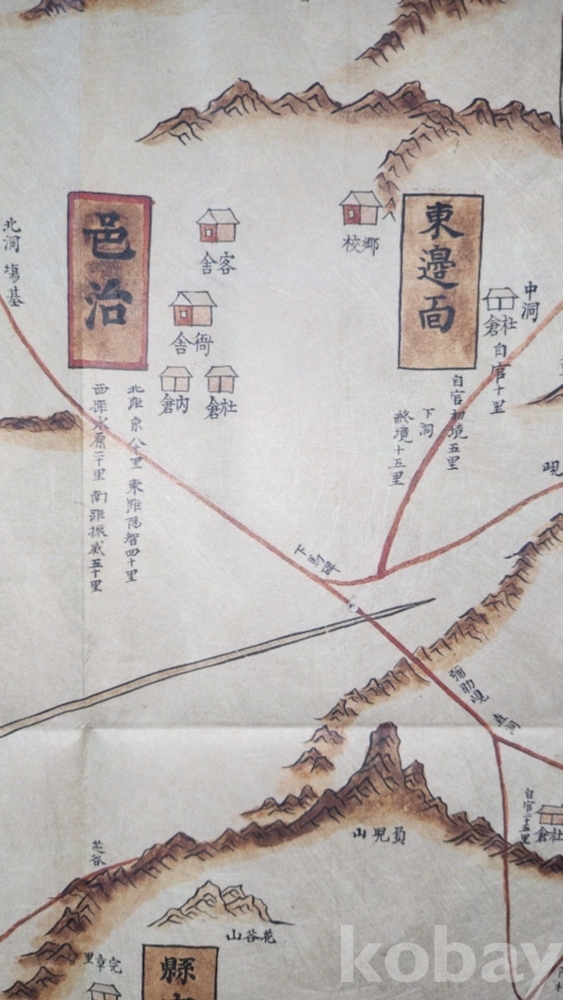 邑治
東邊面
客舍
衙舍
內倉
社倉
鄕校
中洞
社倉
自官十里
自官初境五里
下洞
終境十五里
北洞
北距京八十里 東距陽智四十里
西距水原二十里 南距振威五十里
下馬碑
峴
弥助峴
自官二十五里
社倉
負兒山
芝谷
花谷山
完章里
縣
kobay